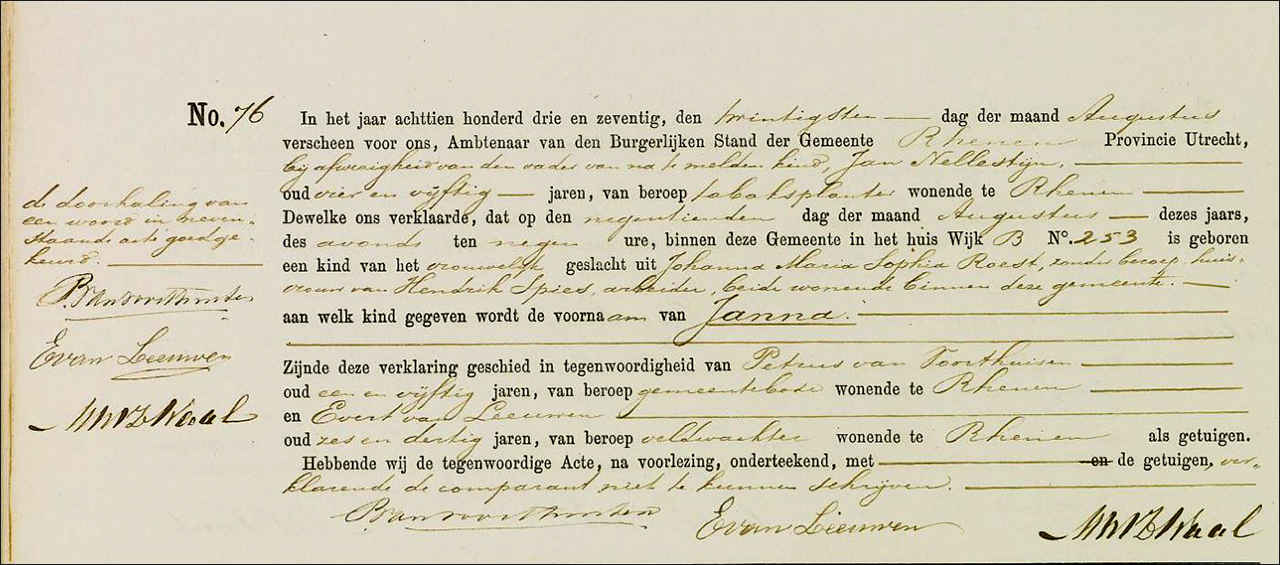 No. 76 In het jaar achttien honderd drie en zeventig, den twintigsten dag der maand Augustus
verscheen voor ons, Ambtenaar van den Burgerlijken Stand der Gemeente Rhenen Provincie Utrecht,
bij afwezigheid van den vader van na te melden kind, Jan Nellestijn.
oud vier en vijftig jaren, van beroep tabaksplanter wonende te Rhenen
Dewelke ons verklaarde, dat op den negentienden dag der maand Augustus dezes jaars,
des avonds ten negen ure, binnen deze Gemeente in het huis Wijk B No. 253 is geboren
een kind van het vrouwelijk geslacht uit Johanna Maria Sophia Roest, zonder beroep, huis-
vrouw van Hendrik Spies, arbeider, beide wonende binnen deze gemeente.
aan welk kind gegeven wordt de voornaam van Janna.
Zijnde deze verklaring geschied in tegenwoordigheid van Petrus van Voorthuisen
oud een en vijftig jaren, van beroep gemeentebode wonende te Rhenen
en Evert van Leeuwen
oud zes en dertig jaren, van beroep veldwachter wonende te Rhenen als getuigen.
Hebbende wij de tegenwoordige Acte, na voorlezing, onderteekend, met en de getuigen, ver-
klarende de comparant niet te kunnen schrijven.
P van Voorthuisen E van Leeuwen
de doorhaling van
een woord in neven-
staande acte goedge-
keurd.
P. van Voorthuisen
E van Leeuwen